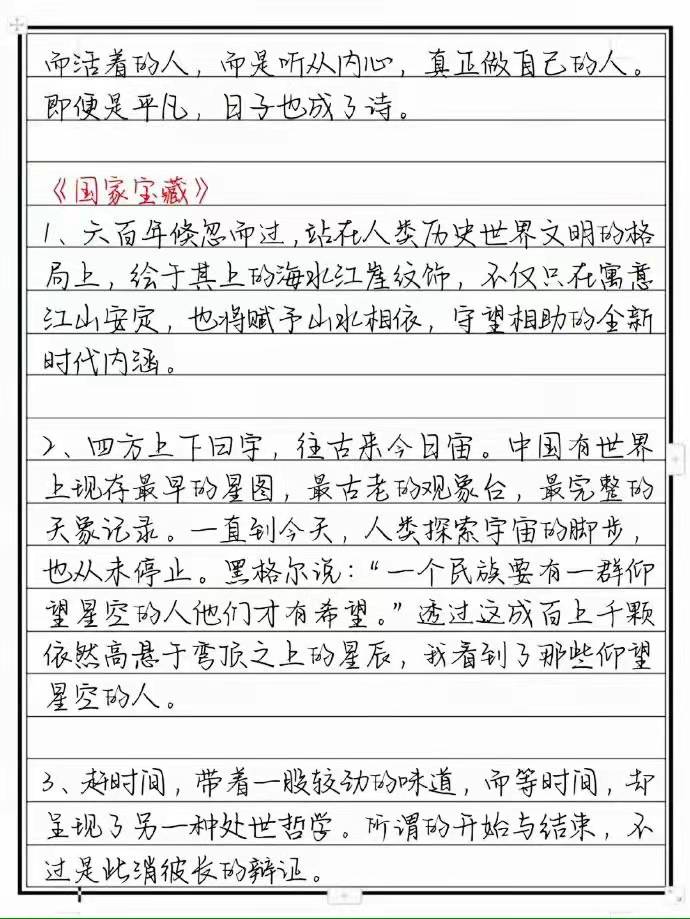 而活着的人，而是听从内心，真正做自己的人。
即便是平凡，日子也成了诗。
《国家宝藏》
1、六百年倏忽而过，站在人类历史世界文明的格
局上，绘于其上的海水江崖纹饰，不仅只在寓意
江山安定，也将赋予山水相依，守望相助的全新
时代内涵。
2、四方上下曰宇，往古来今曰宙。中国有世界
上现存最早的星图，最古老的观象台，最完整的
天象记录。一直到今天，人类探索宇宙的脚步，
也从未停止。黑格尔说：“一个民族要有一群仰
望星空的人他们才有希望。”透过这成百上千颗
依然高悬于穹顶之上的星辰，我看到了那些仰望
星空的人。
3、赶时间，带着一股较劲的味道，而等时间，却
呈现了另一种处世哲学。所谓的开始与结束，不
过是此消彼长的辩证。